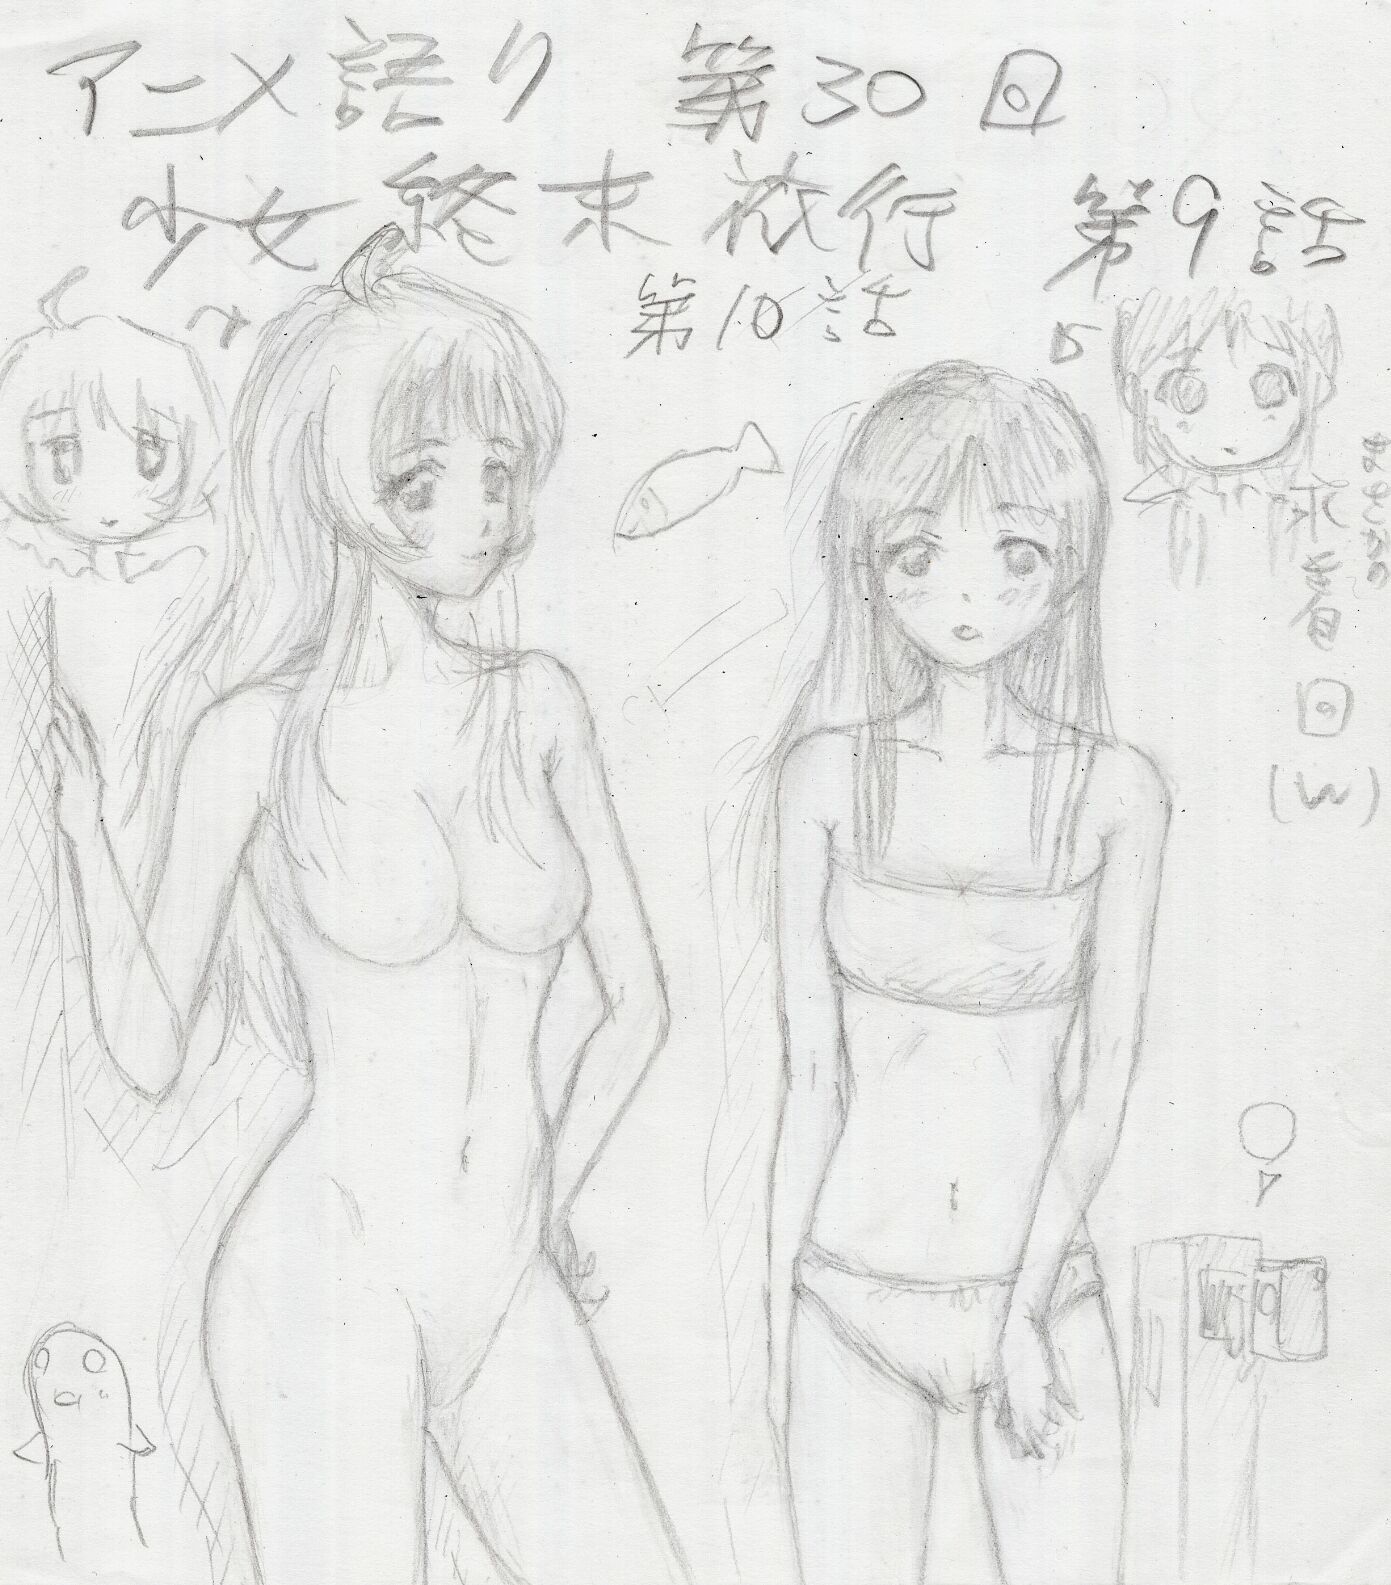 アニメ語り 第30回
少女終末旅行 第9話
第10話
水着回
(w)